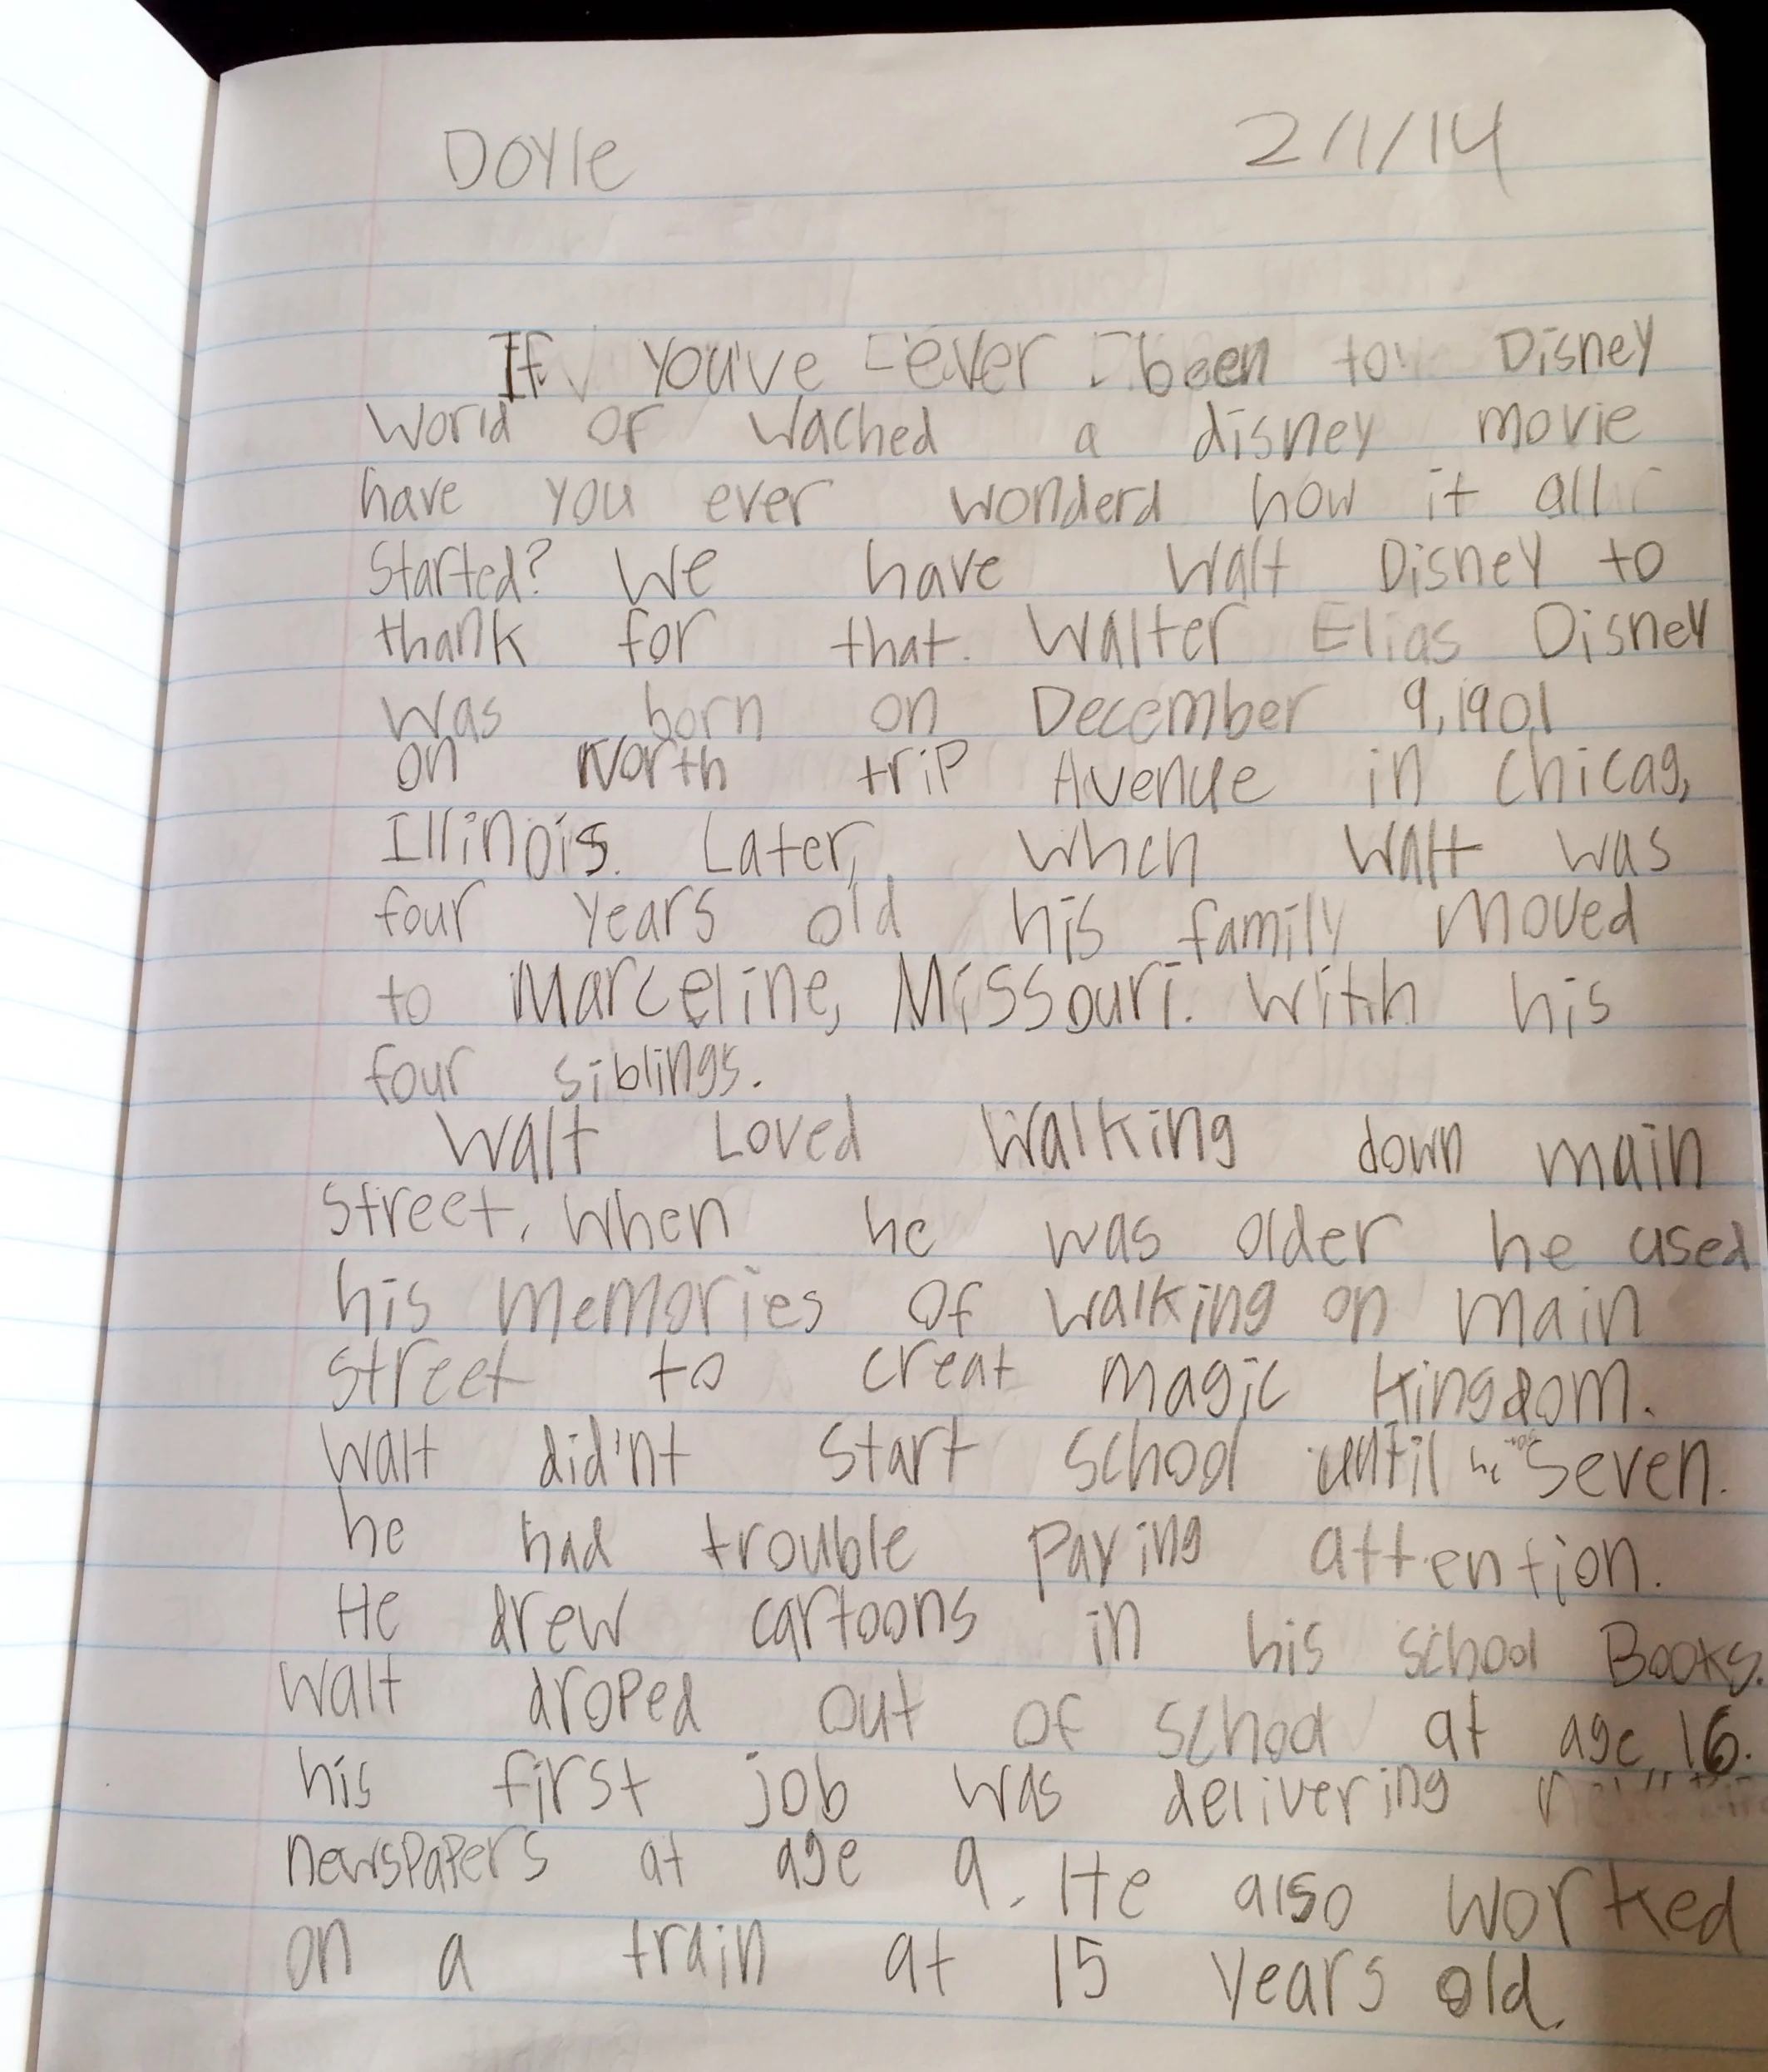 Doyle 2/1/14
If you've ever been to Disney
World or wached a disney movie
have you ever wonderd how it all
Started? We have Walt Disney to
thank for that. Walter Elias Disney
was born on December 9, 1901
on North trip Avenue in chicag,
Illinois. Later, when Walt was
four years old his family moved
to Marceline, Missouri. with his
four siblings.
Walt Loved Walking down main
Street. When he was older he used
his memories of walking on main
street to creat magic Kingdom.
Walt did'nt start school until he was seven.
he had trouble paying attention.
He drew cartoons in his school Books.
Walt droped out of school at age 16.
his first job was delivering
newspapers at age 9. He also worked
on a train at 15 years old.